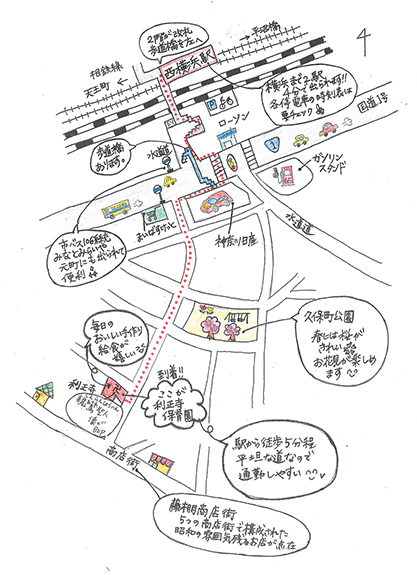 2階が改札
歩道橋を左へ
平沼橋
相鉄線
天王町
西横浜駅
横浜まで2駅
4分で出られます!!
各停電車の時刻表は
要チェック
国道1号
1
ローソン
歩道橋
あります。
水道道
ガソリン
スタンド
水道道
まいばすけっと
神奈川日産
市バス106系統
みなとみらいや
元町にも出られて
便利
久保町公園
春には桜が
きれい
お花見が楽しめ
ます
毎日の
おいしい手作り
給食が
嬉しい
到着!!
ここが
利正寺
保育園
利正寺
駅から徒歩5分程
平坦な道なので
通勤しやすい
商店街
藤棚商店街
5つの商店街で構成された
昭和の雰囲気残るお店が点在